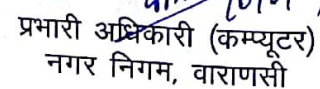 प्रभारी अधिकारी (कम्प्यूटर)
नगर निगम, वाराणसी